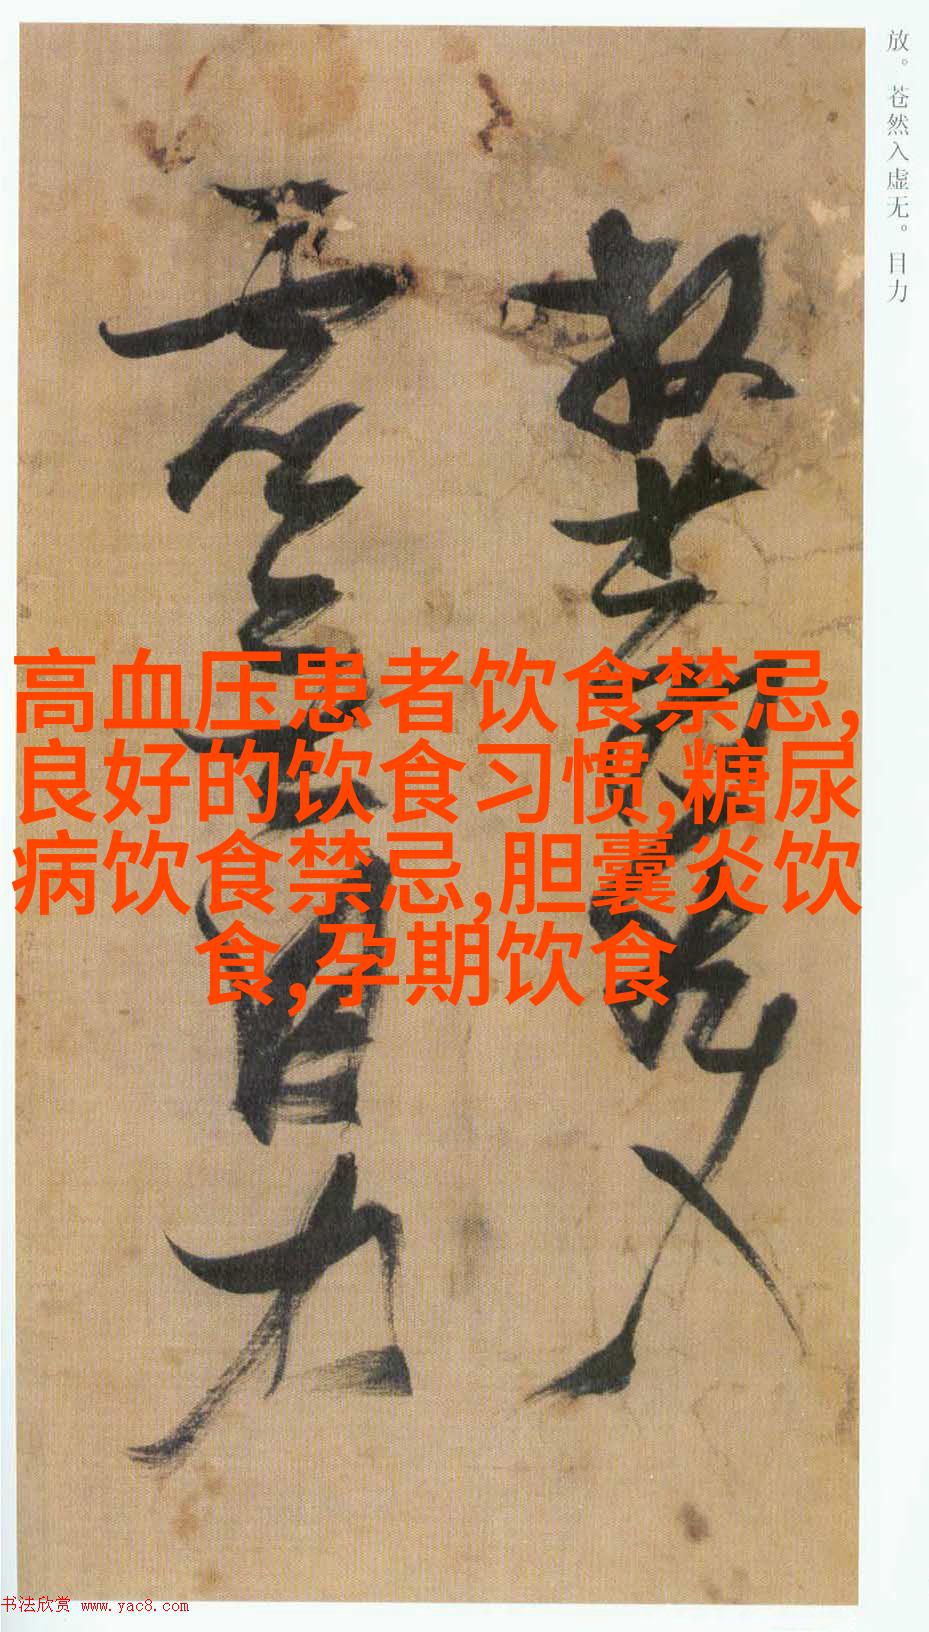 放。苍然入虚无。目力
放苍然入
虚无目力
高血压患者饮食禁忌,
良好的饮食习惯,糖尿
病饮食禁忌,胆囊炎饮
食,孕期饮食
书法欣赏 www.yac8.com